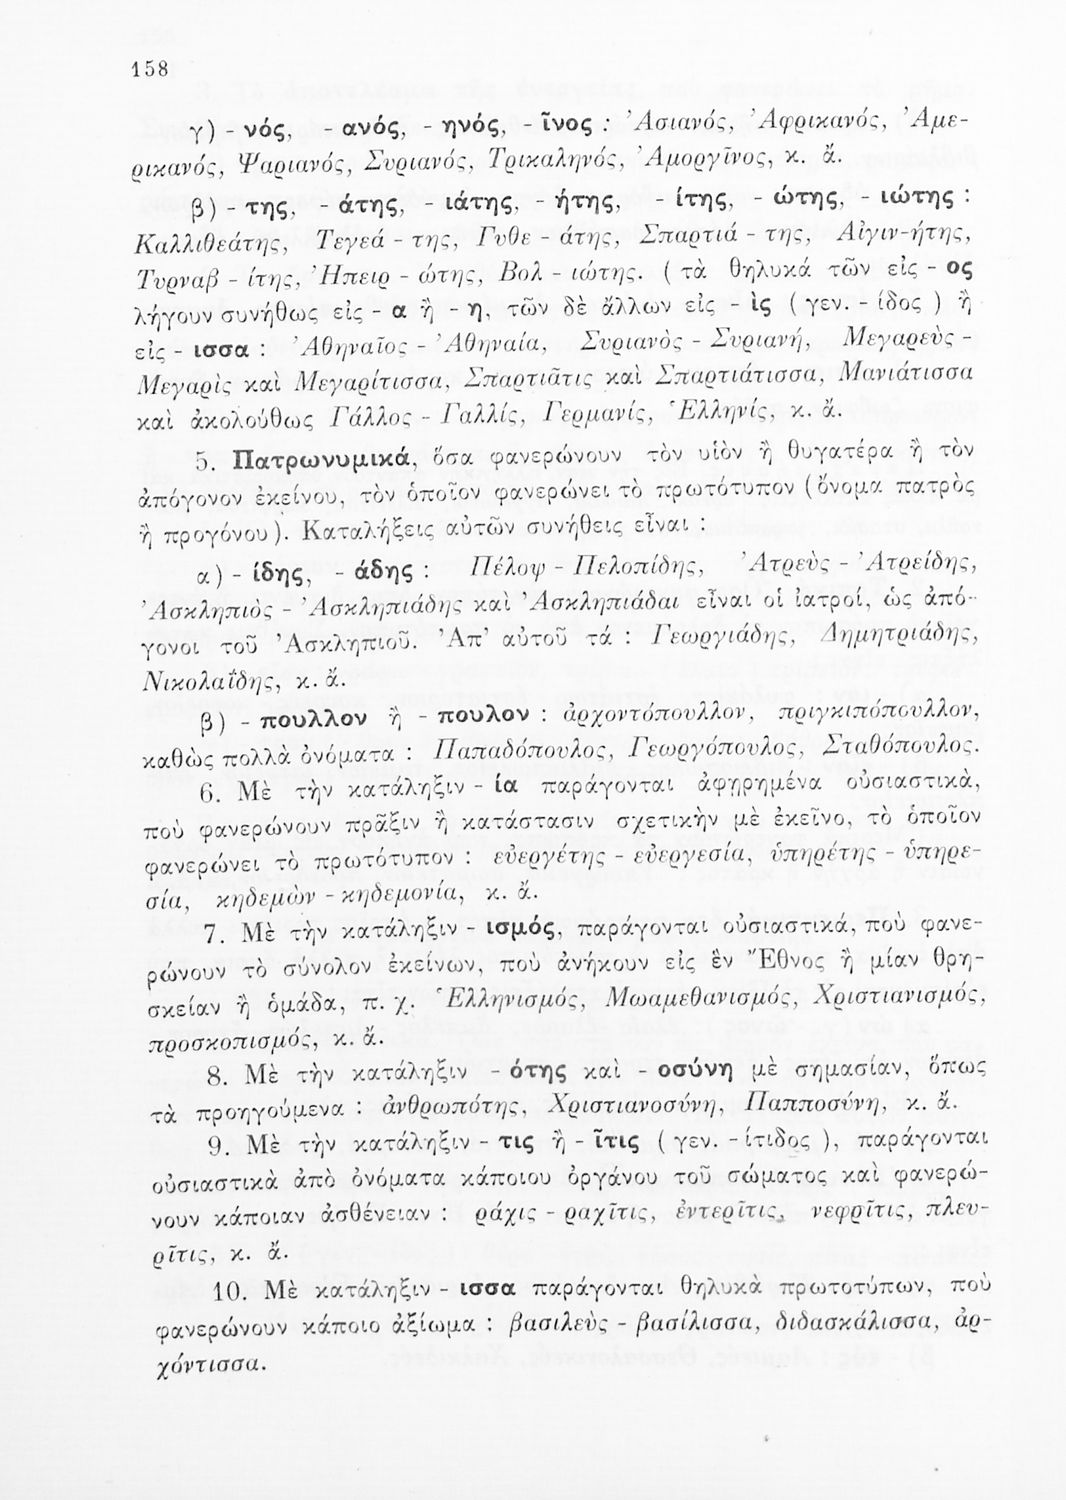 158
γ) - νός, - ανός, - ηνός, - ῖνος : Ἀσιανός, Ἀφρικανός, Ἀμε-
ρικανός, Ψαριανός, Συριανός, Τρικαληνός, Ἀμοργῖνος, κ. ἄ.
β) - της, - άτης, - ιάτης, - ήτης, - ίτης, - ώτης, - ιώτης :
Καλλιθεάτης, Τεγεά - της, Γυθε - άτης, Σπαρτιά - της, Αἰγιν-ήτης,
Τυρναβ - ίτης, Ἠπειρ - ώτης, Βολ - ιώτης. ( τὰ θηλυκά τῶν εἰς - ος
λήγουν συνήθως εἰς - α ἢ - η, τῶν δὲ ἄλλων εἰς - ὶς ( γεν. - ίδος ) ἢ
εἰς - ισσα : Ἀθηναῖος - Ἀθηναία, Συριανὸς - Συριανή, Μεγαρεὺς -
Μεγαρὶς καὶ Μεγαρίτισσα, Σπαρτιᾶτις καὶ Σπαρτιάτισσα, Μανιάτισσα
καὶ ἀκολούθως Γάλλος - Γαλλίς, Γερμανίς, Ἑλληνίς, κ. ἄ.
5. Πατρωνυμικά, ὅσα φανερώνουν τὸν υἱὸν ἢ θυγατέρα ἢ τὸν
ἀπόγονον ἐκείνου, τὸν ὁποῖον φανερώνει τὸ πρωτότυπον (ὄνομα πατρὸς
ἢ προγόνου). Καταλήξεις αὐτῶν συνήθεις εἶναι :
α) - ίδης, - άδης : Πέλοψ - Πελοπίδης, Ἀτρεὺς - Ἀτρείδης,
Ἀσκληπιὸς - Ἀσκληπιάδης καὶ Ἀσκληπιάδαι εἶναι οἱ ἰατροί, ὡς ἀπό-
γονοι τοῦ Ἀσκληπιοῦ. Ἀπ’ αὐτοῦ τά : Γεωργιάδης, Δημητριάδης,
Νικολαΐδης, κ. ἄ.
β) - πουλλον ἢ - πουλον : ἀρχοντόπουλλον, πριγκιπόπουλλον,
καθὼς πολλὰ ὀνόματα : Παπαδόπουλος, Γεωργόπουλος, Σταθόπουλος.
6. Μὲ τὴν κατάληξιν - ία παράγονται ἀφῃρημένα οὐσιαστικὰ,
ποὺ φανερώνουν πρᾶξιν ἢ κατάστασιν σχετικὴν μὲ ἐκεῖνο, τὸ ὁποῖον
φανερώνει τὸ πρωτότυπον : εὐεργέτης - εὐεργεσία, ὑπηρέτης - ὑπηρε-
σία, κηδεμὼν - κηδεμονία, κ. ἄ.
7. Μὲ τὴν κατάληξιν - ισμός, παράγονται οὐσιαστικά, ποὺ φανε-
ρώνουν τὸ σύνολον ἐκείνων, ποὺ ἀνήκουν εἰς ἓν Ἔθνος ἢ μίαν θρη-
σκείαν ἢ ὁμάδα, π. χ. Ἑλληνισμός, Μωαμεθανισμός, Χριστιανισμός,
προσκοπισμός, κ. ἄ.
8. Μὲ τὴν κατάληξιν - ότης καὶ - οσύνη μὲ σημασίαν, ὅπως
τὰ προηγούμενα : ἀνθρωπότης, Χριστιανοσύνη, Παπποσύνη, κ. ἄ.
9. Μὲ τὴν κατάληξιν - τις ἢ - ῖτις ( γεν. - ίτιδος ), παράγονται
οὐσιαστικὰ ἀπὸ ὀνόματα κάποιου ὀργάνου τοῦ σώματος καὶ φανερώ-
νουν κάποιαν ἀσθένειαν : ράχις - ραχῖτις, ἐντερῖτις, νεφρῖτις, πλευ-
ρῖτις, κ. ἄ.
10. Μὲ κατάληξιν - ισσα παράγονται θηλυκὰ πρωτοτύπων, ποὺ
φανερώνουν κάποιο ἀξίωμα : βασιλεὺς - βασίλισσα, διδασκάλισσα, ἀρ-
χόντισσα.